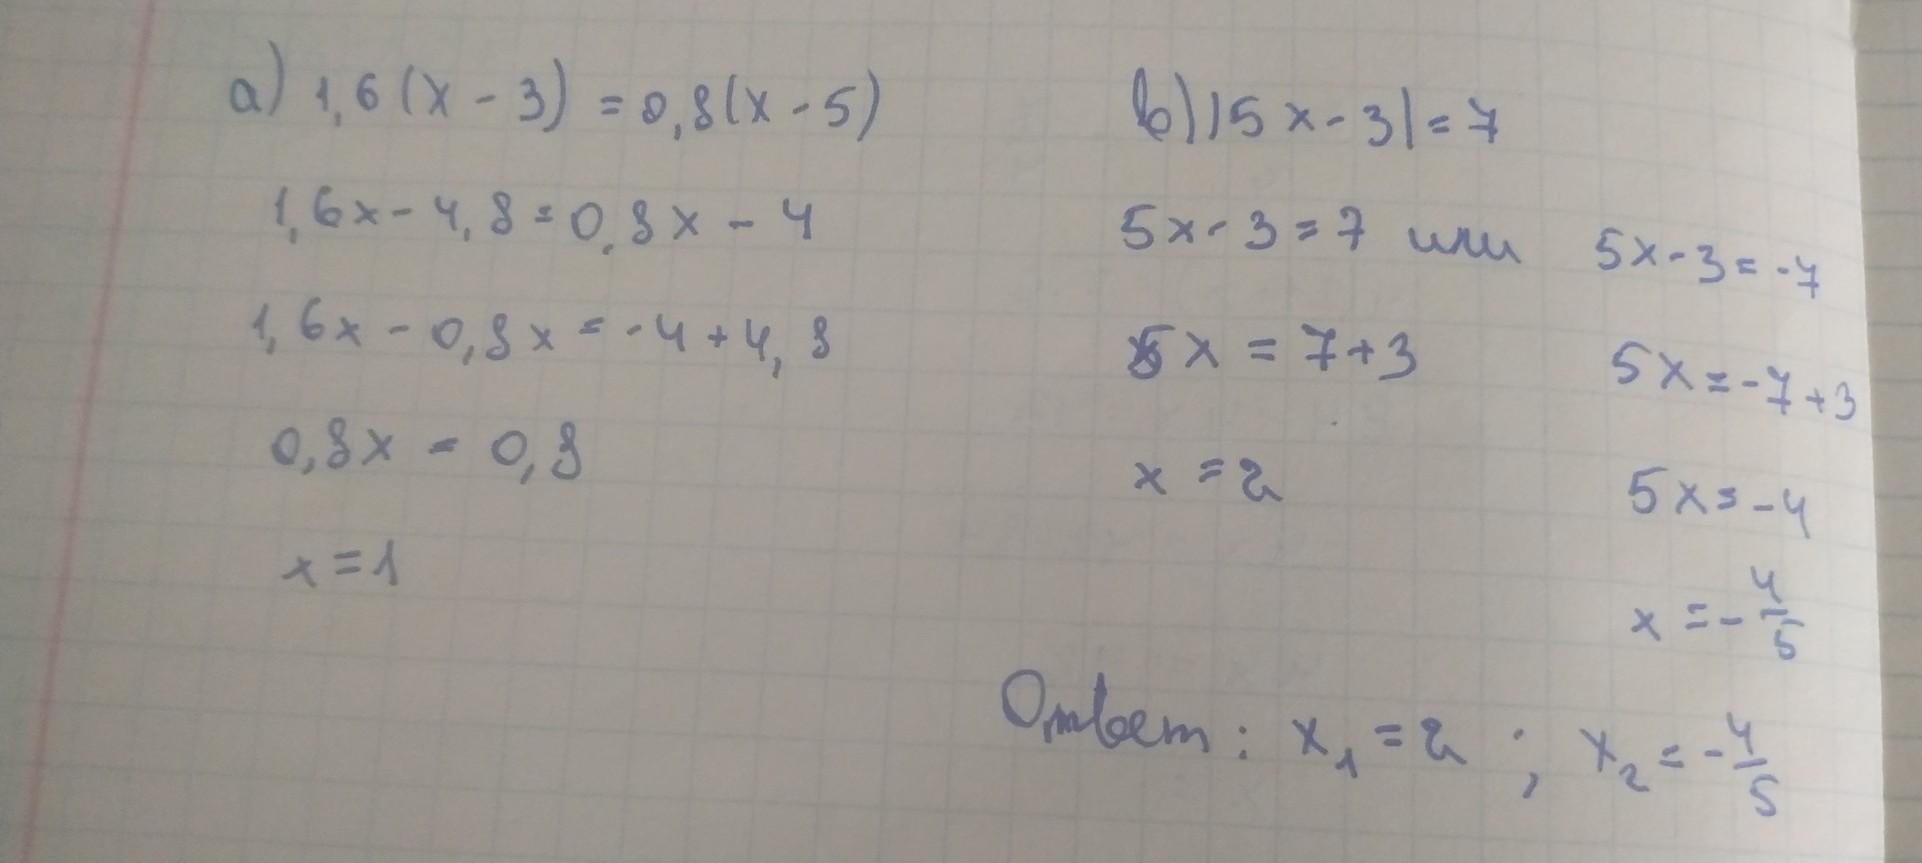 а) 1,6(x - 3) = 0,8(x - 5)
1,6x - 4,8 = 0,8x - 4
1,6x - 0,8x = -4 + 4,8
0,8x = 0,8
x = 1
b) |5x - 3| = 7
5x - 3 = 7 или 5x - 3 = -7
5x = 7 + 3 5x = -7 + 3
x = 2 5x = -4
x = -4/5
Ответ: x₁ = 2 ; x₂ = -4/5